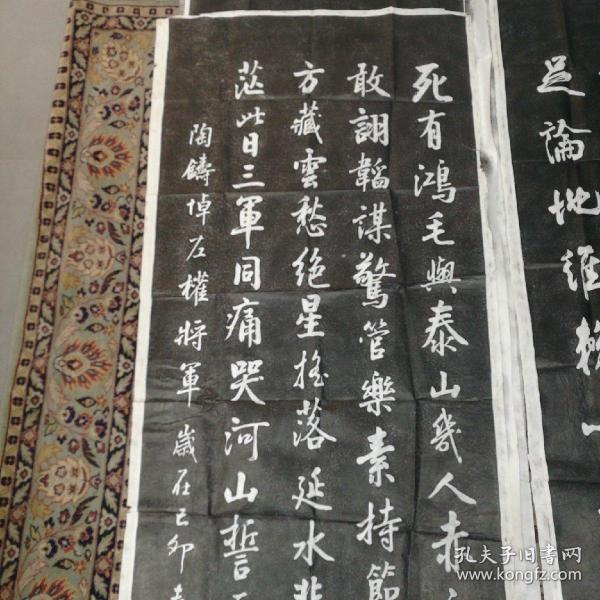 死有鴻毛與泰山幾人赤
敢詡韜謀驚管樂素持節
方藏雲愁絶星摇落延水
茫此日三軍同痛哭河山誓
陶鑄悼左權將軍 歲在己卯
足論地雄
孔夫子旧书网
www.kongfz.com